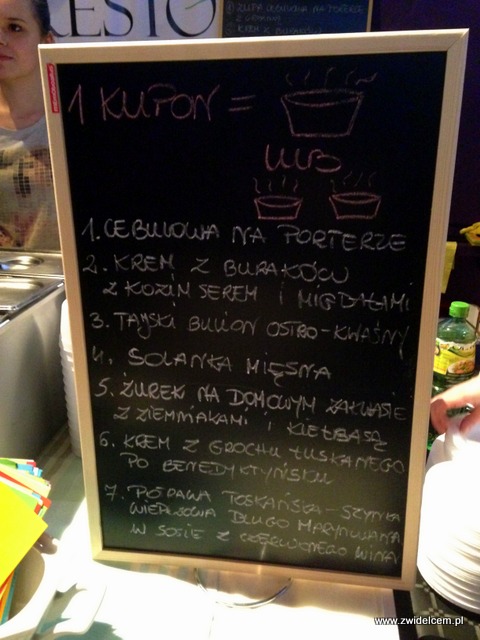 RESTO
1 KUPON =
LUB
1. CEBULOWA NA PORTERZE
2. KREM Z BURAKÓW
Z KOZIM SEREM I MIGDAŁAMI
3. TAJSKI BULION OSTRO-KWAŚNY
4. SOLANKA MIĘSNA
5. ŻUREK NA DOMOWYM ZAKWASIE
Z ZIEMNIAKAMI I KIEŁBASĄ
6. KREM Z GROCHU ŁUSKANEGO
PO BENEDYKTYŃSKU
7. TOSKAŃSKA - SZYNKA
WIEPRZOWA DŁUGO MARYNOWANA
W SOSIE Z CZERWONEGO WINA
www.zwidelcem.pl